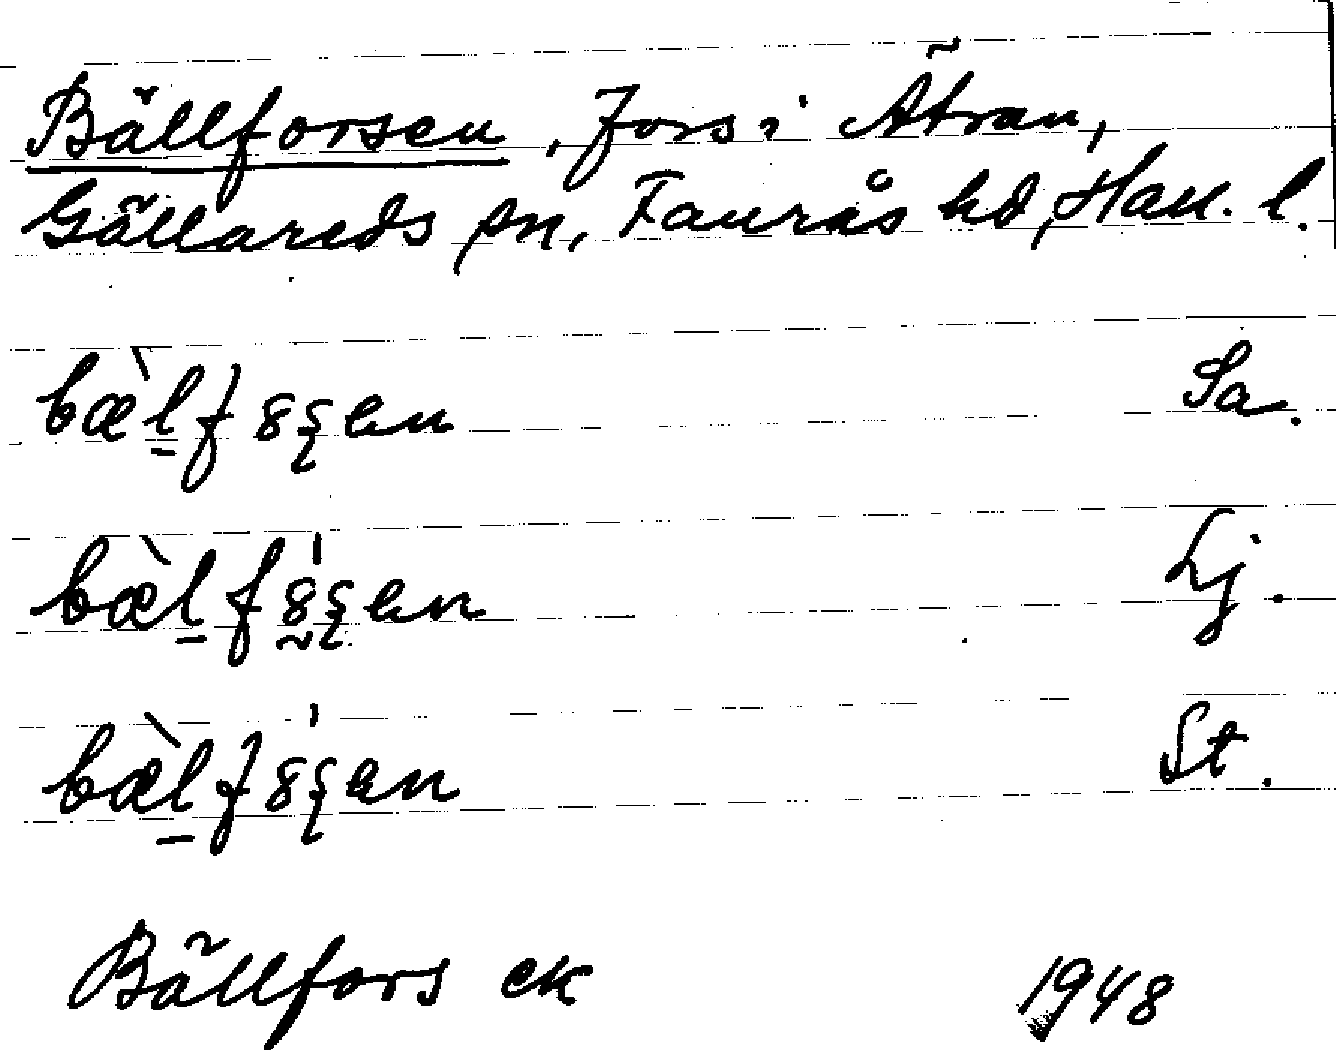 Bällforsen, fors i Ätran,
Gällareds sn, Faurås hd, Hall. l.
bæ̀l̠f8ʂen Sa.
bæ̀l̠f8̰̍ʂen Lj.
bæ̀l̠f8̍ʂen St.
Bällfors ek 1948